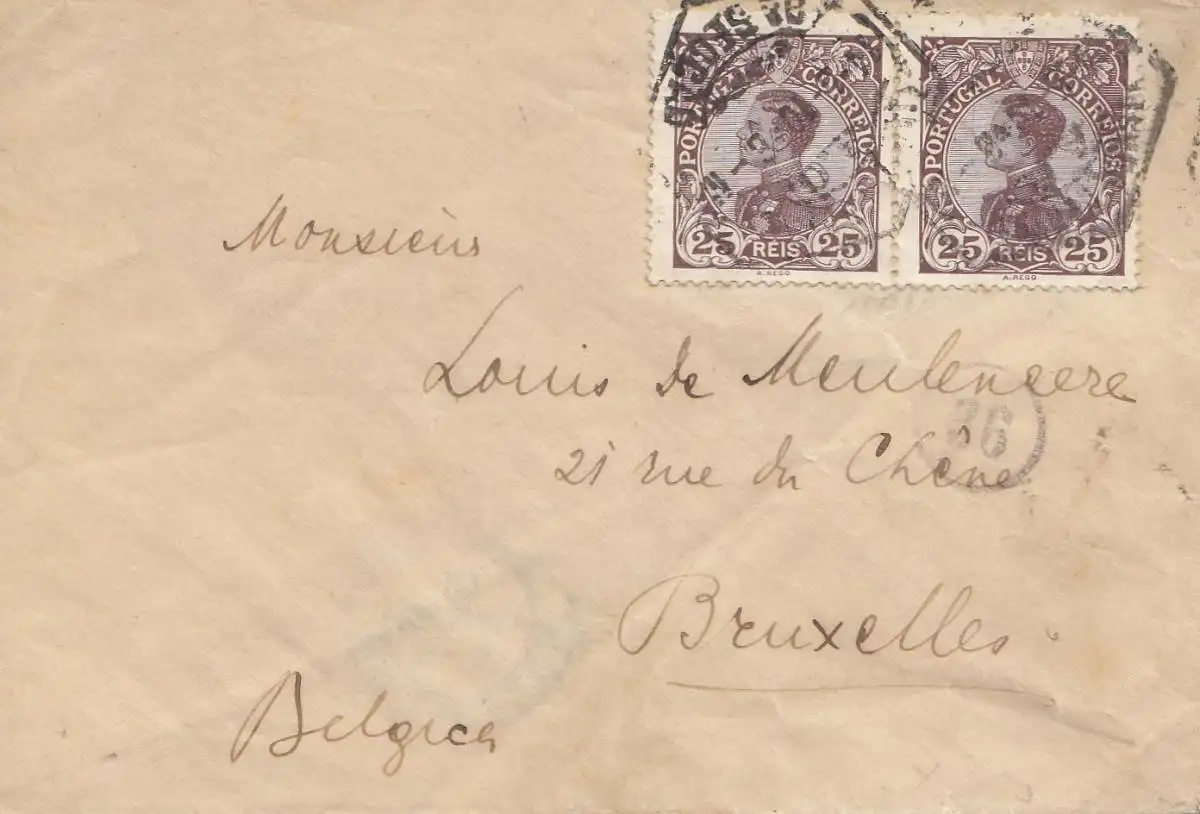 PORTUGAL CORREIOS
25 REIS 25
A. REGO
PORTUGAL CORREIOS
25 REIS 25
A. REGO
Monsieur
Louis de Meuleneere
21 rue du Chêne
Bruxelles
Belgica